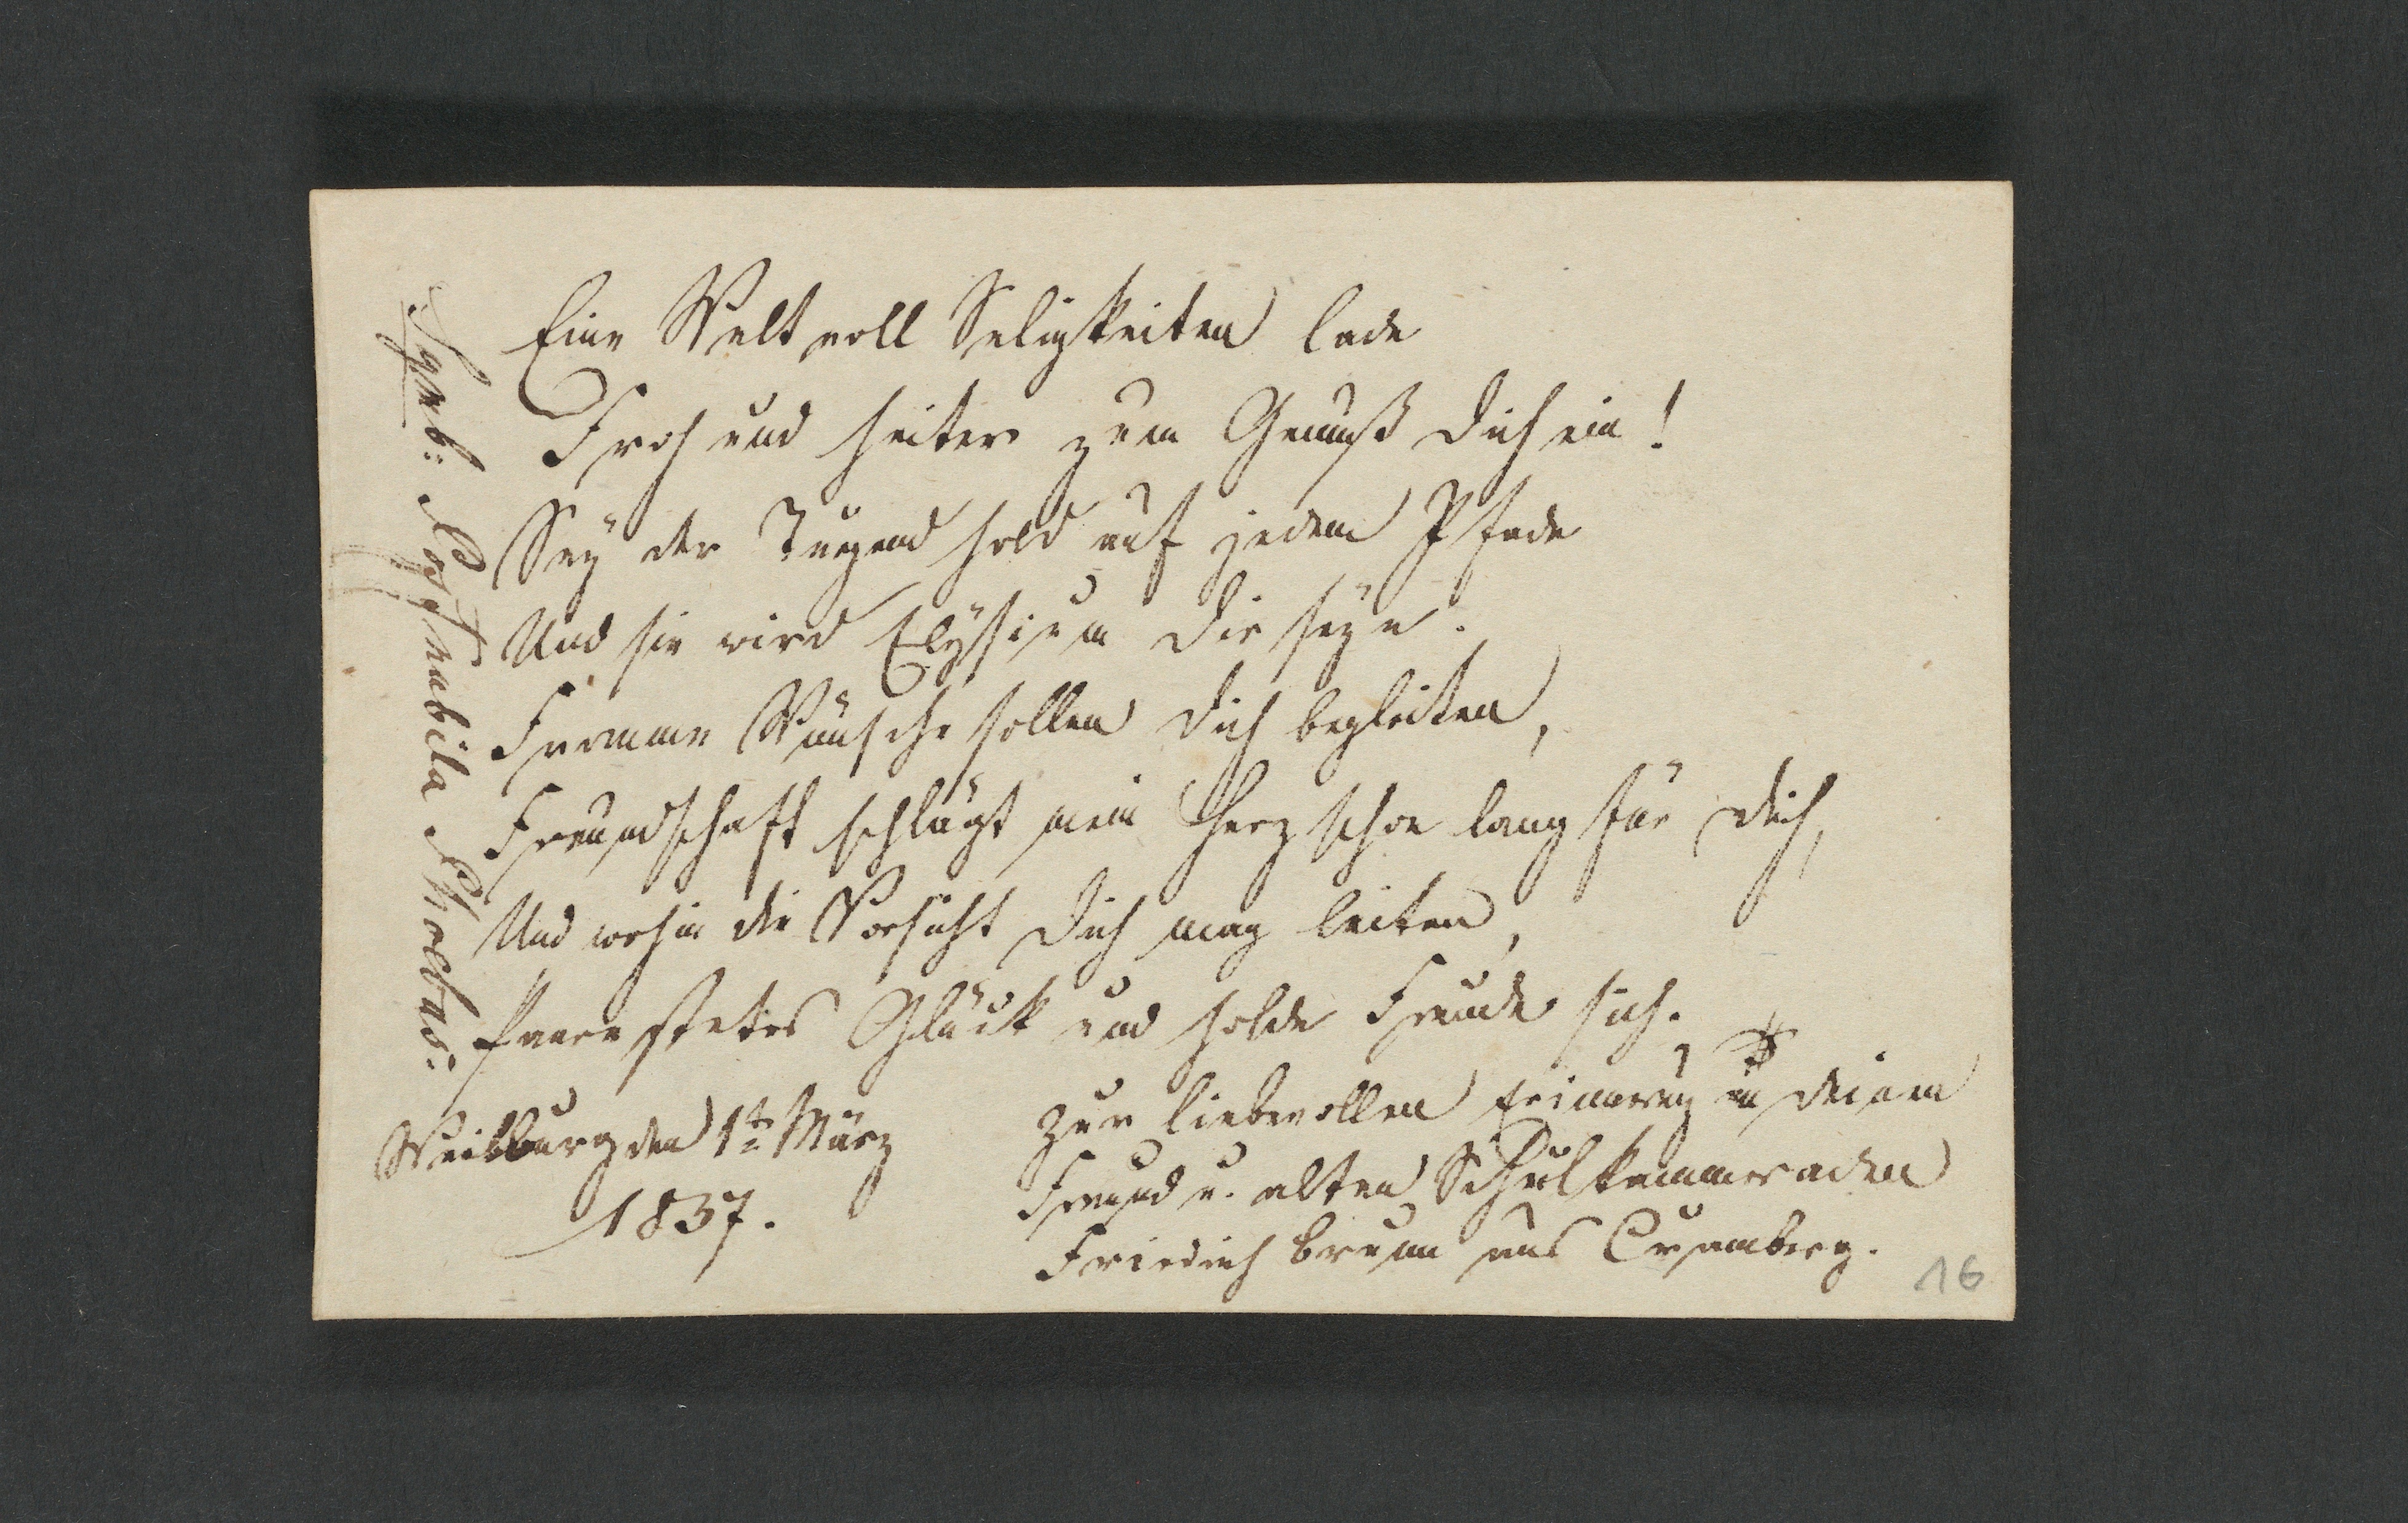 Eine Welt voll Seligkeiten lade
Froh und heiter zum Genuß Dich ein!
Sey der Tugend hold auf jedem Pfade
Und sie wird Elysium Dir seyn.
Fromme Wünsche sollen Dich begleiten,
Freundschaft schlägt mein Herz schon lang für Dich,
Und wohin die Vorsicht Dich mag leiten,
Paare stetes Glück und holde Freude sich.
Weilburg den 1ten März
1837.
Zur liebevollen Erinnerung an deinen
Freund u. alten Schulkammeraden
Friedrich Brumm aus Cramberg.
Symb:
16